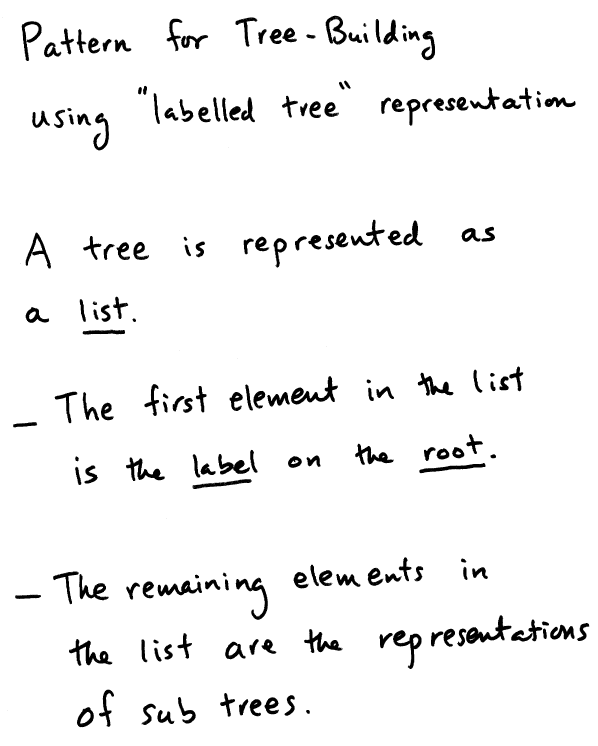 Pattern for Tree-Building
using "labelled tree" representation
A tree is represented as
a list.
- The first element in the list
is the label on the root.
- The remaining elements in
the list are the representations
of sub trees.